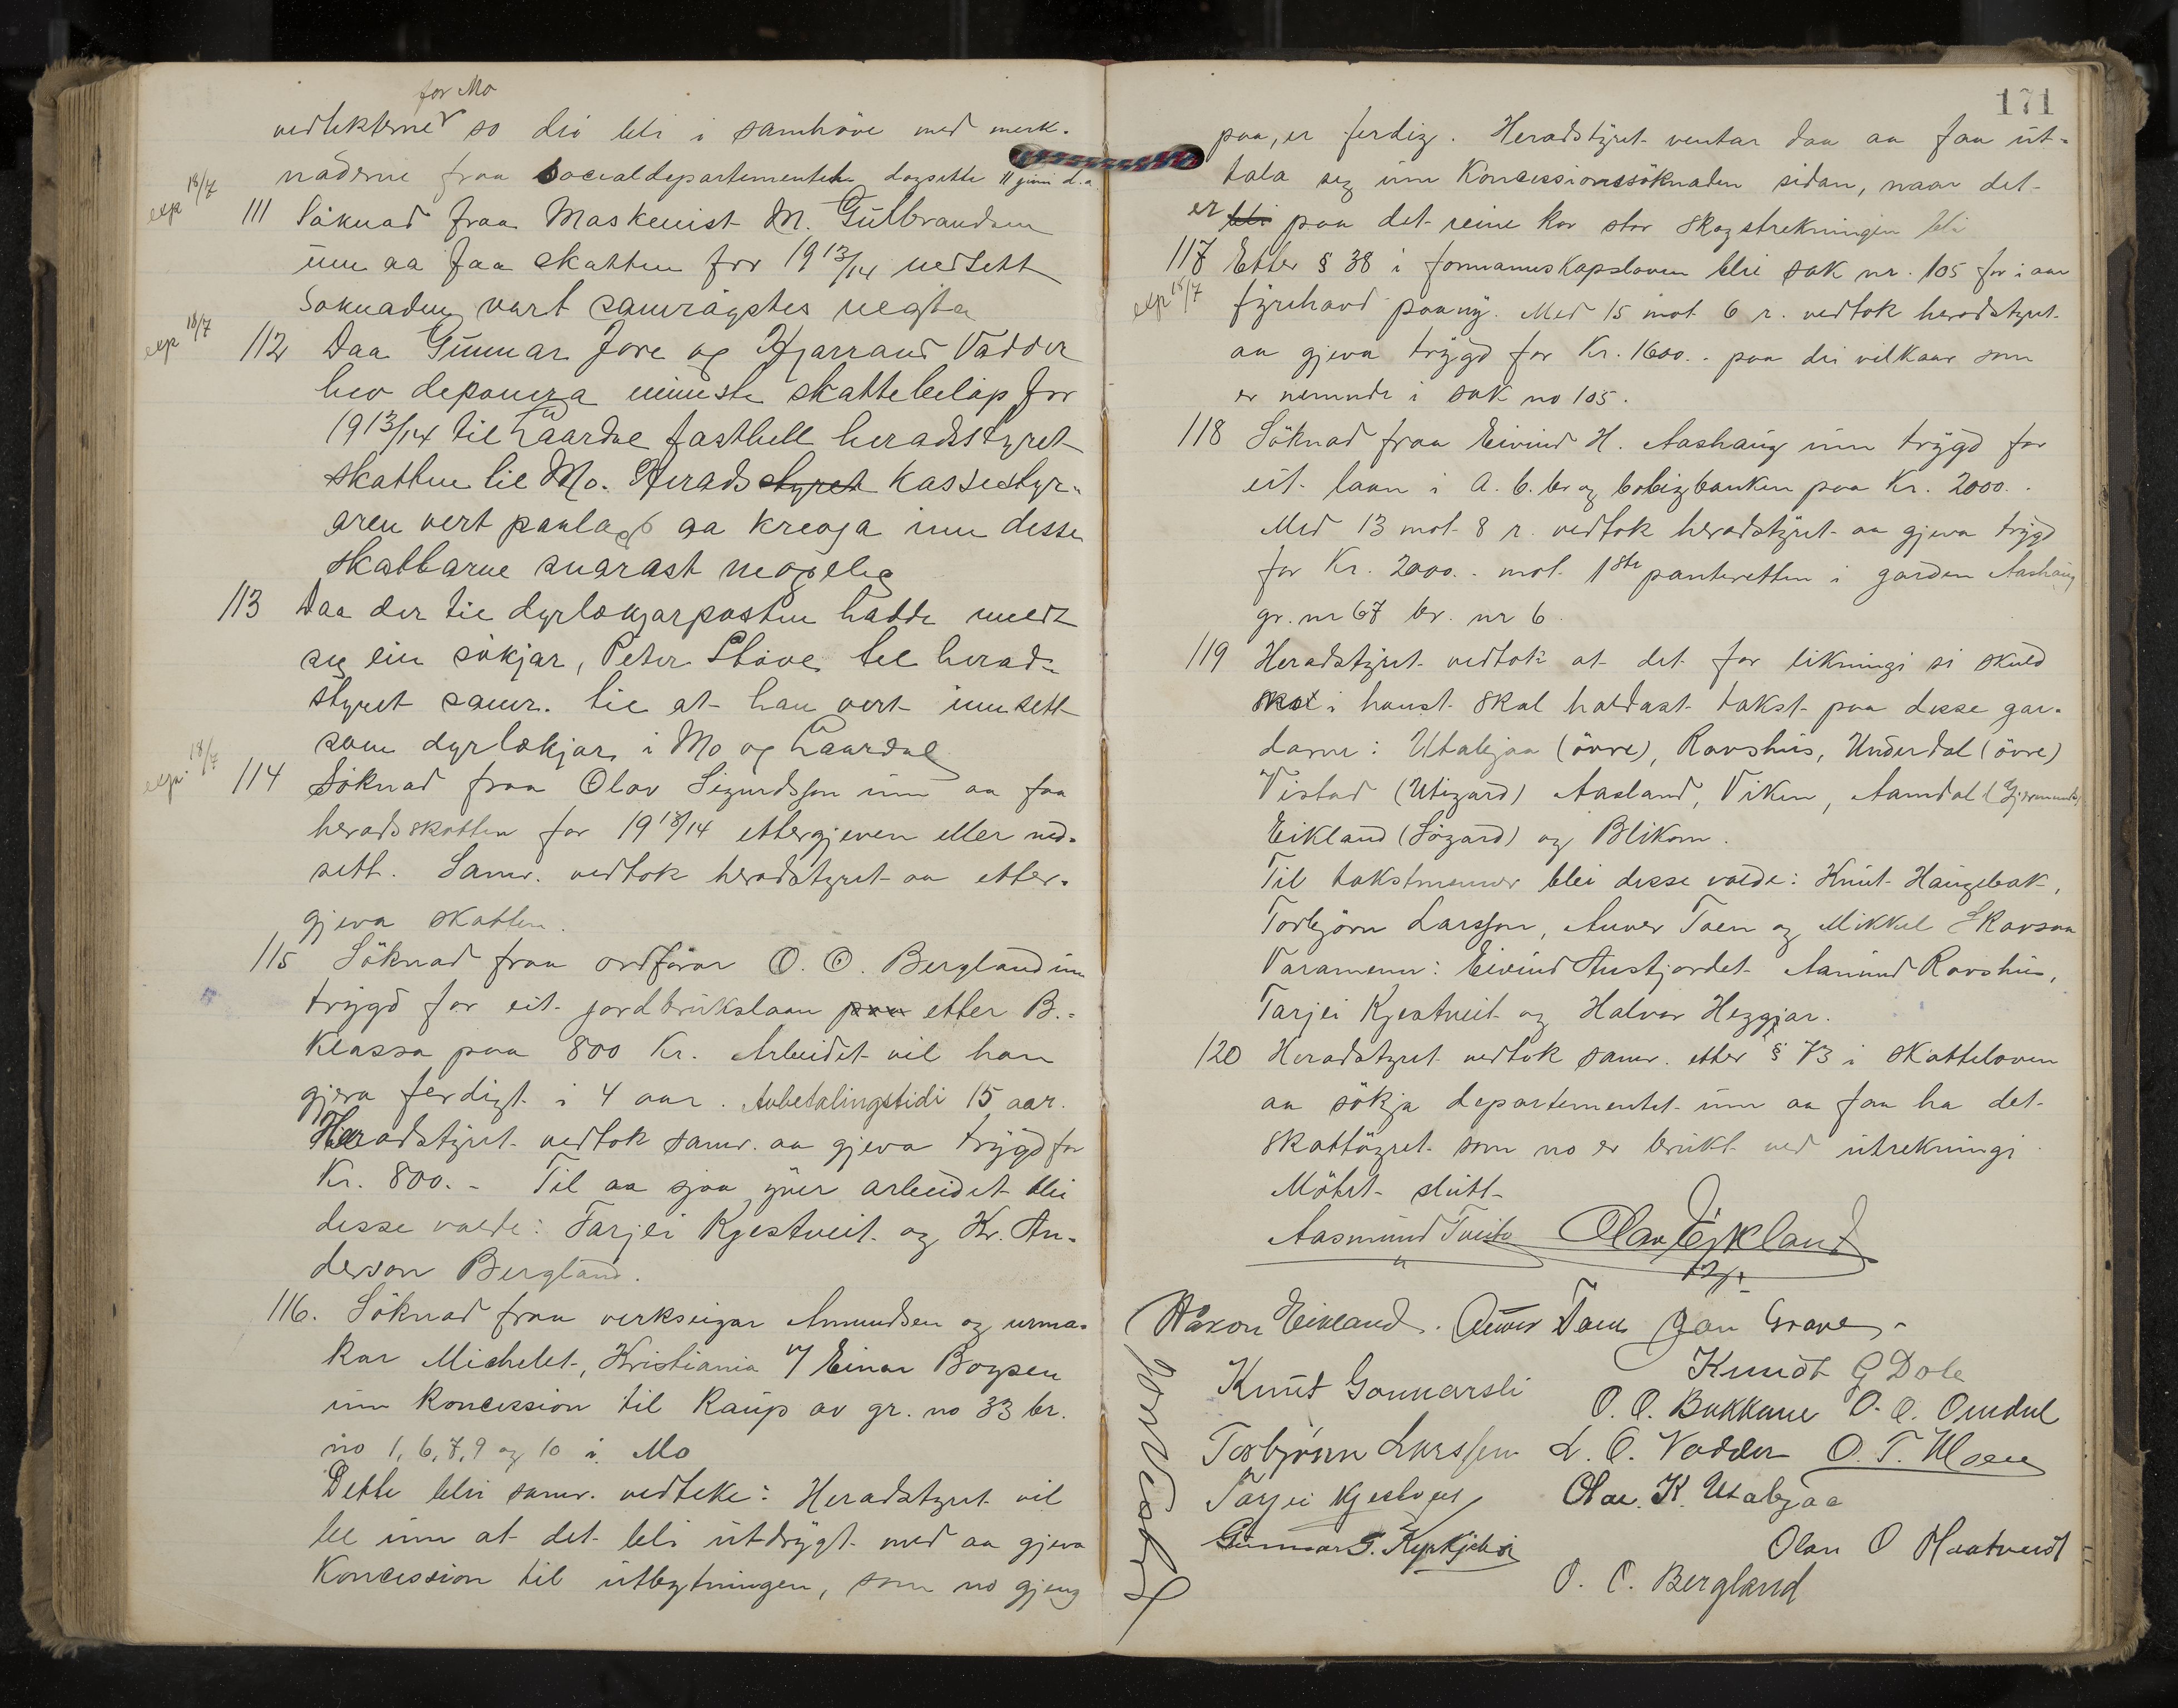 for Mo
vedtekterne so dei bli i samhöve med merk-
naderne fraa Socialdepartementet dagsette 11 juni d.a.
exp 18/7
111 Söknad fraa Maskenist M. Gulbrandsen
um aa faa skatten for 1913/14 nedsett
Soknaden vart samrøystes negta
exp 18/7
112 Daa Gunnar Jore og Hjarrand Vadder
hev deponera minste skattebeløp for
1913/14 til Laardal fasthell heradsstyret
skatten til Mo. Herads styret Kassestyr-
aren vert paalagt aa krevja inn desse
skattarne snarast mogeleg
113 Daa der til dyrlækjarposten hadde meldt
seg ein søkjar, Peter Støve tel herad-
styret samr. til at han vert innsett
som dyrlækjar i Mo og Laardal
exp. 18/7
114 Söknad fraa Olav Sigurdsson um aa faa
heradsskatten for 1913/14 ettergjeven eller ned-
sett. Samr. vedtok heradstyret aa etter-
gjeva skatten.
115 Söknad fraa ordförar O. O. Bergland um
trygd for eit jordbrukslaan paa etter B.-
Klassa paa 800 Kr. Arbeidet vil han
gjera ferdigt i 4 aar. Avbetalingstidi 15 aar.
Heradstyret vedtok samr. aa gjeva trygd for
Kr. 800.- Til aa sjaa yver arbeidet blei
desse valde: Tarjei Kjestveit og Kr. An-
derson Bergland.
116. Söknad fraa verkseigar Amundsen og urma-
kar Michelet, Kristiania v/ Einar Boysen
um koncession til kaup av gr. no 33 br.
no 1, 6, 7, 9 og 10 i Mo
Dette blei samr. vedteke: Heradstyret vil
be um at det bli utdrygt med aa gjeva
Koncession til utbytningen, som no gjeng
171
paa, er ferdig. Heradstyret ventar daa aa faa ut-
tala seg um Koncessionssöknaden sidan, naar det
er bli paa det reine kor stor skogstrekningen bli
exp 18/7
117 Etter § 38 i formannskapsloven blei sak nr. 105 for i aar
fyrehavd paany. Med 15 mot 6 r. vedtok heradstyret
aa gjeva trygd for Kr. 1600.- paa dei vilkaar som
er nemnde i sak no 105.
118 Söknad fraa Eivind H. Aashaug um trygd for
eit laan i A. b. br og boligbanken paa Kr. 2000.-
Med 13 mot 8 r. vedtok heradstyret aa gjeva trygd
for Kr. 2000.- mot 1ste panteretten i garden Aashaug
gr. nr 67 br. nr 6.
119 Heradstyret vedtok at det for likningi si skuld
skal i haust skal haldast takst paa desse gar-
darne: Utabjaa (övre), Ravshus, Underdal (övre)
Vistad (Utigard) Aasland, Viken, Aamdal (Gjermunds)
Eikland (Sögard) og Blikom.
Til takstmenner blei desse valde: Knut Haugebak,
Torbjörn Larsson, Anver Toen og Mikkel Skavsaa
Varamenn: Eivind Austjordet Aanund Ravshus,
Tarjei Kjestveit og Halvor Heggjar.
120 Heradstyret vedtok samr. etter § 73 i skatteloven
aa sökja departementet um aa faa ha det
skattöyret som no er brukt ved utrekningi
Mötet slutt
Aasmund Tveito Olav Eikland
Håkon Eikland. Anver Toen Jan Grave
Knut Gonnarsli Knudt G Dole
O. O. Bakkane O. O. Omdal
Torbjönn Larsson L. O. Vadder O. T. Moen
Tarjei Kjestveit Olav K. Utabjaa
Gunnar G. Kyrkjebö Olav O Haatveidt
O. O. Bergland